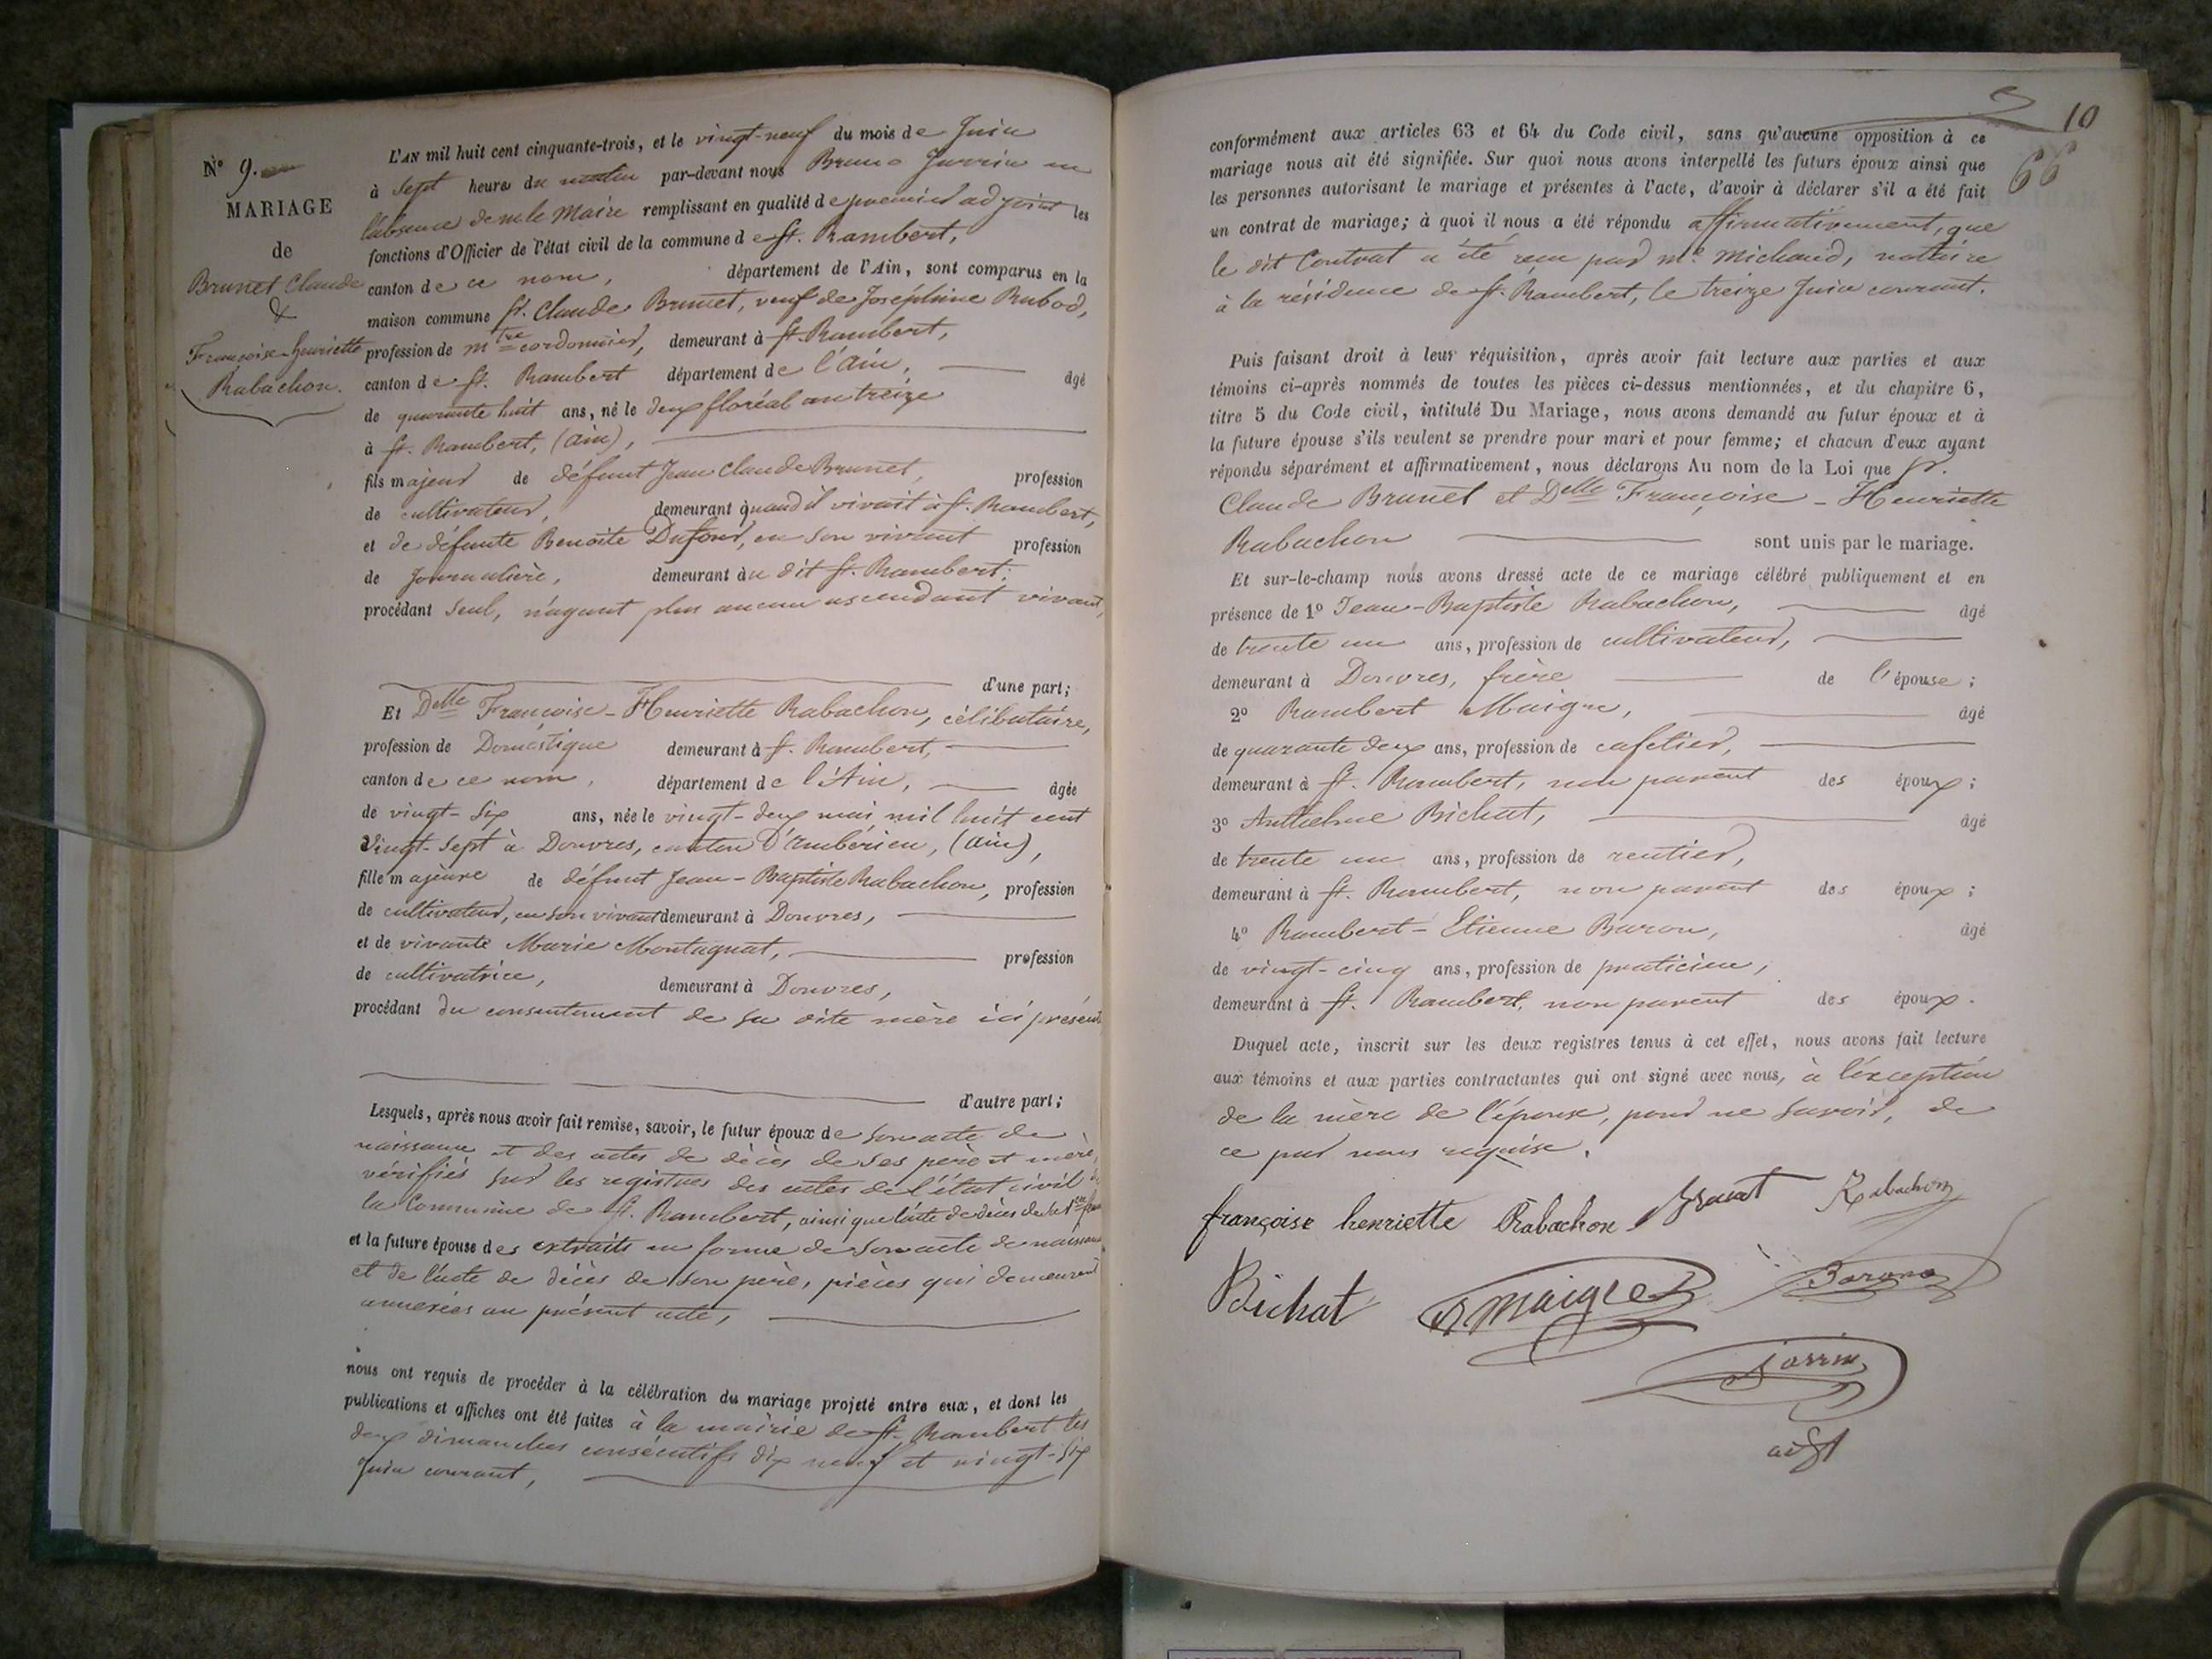 N° 9.
MARIAGE
de
Brunet Claude
&
Françoise-henriette
Rabachon.
L'AN mil huit cent cinquante-trois, et le vingt-neuf du mois de Juin
à sept heures du matin par-devant nous Bruno Jarrin en
l'absence de m. le Maire remplissant en qualité de premier adjoint les
fonctions d'Officier de l'état civil de la commune de St. Rambert,
canton de ce nom, département de l'Ain, sont comparus en la
maison commune Sr. Claude Brunet, veuf de Joséphine Rubod,
profession de mtre cordonnier, demeurant à St. Rambert,
canton de St. Rambert département de l'Ain, âgé
de quarante huit ans, né le deux floréal an treize
à St. Rambert, (Ain),
fils majeur de défunt Jean Claude Brunet, profession
de cultivateur, demeurant quand il vivait à St. Rambert,
et de défunte Benoite Dufour, en son vivant profession
de Journalière, demeurant au dit St. Rambert;
procédant seul, n'ayant plus aucun ascendant vivant,
d'une part;
Et Delle Françoise-Henriette Rabachon, célibataire,
profession de Domestique demeurant à St. Rambert,
canton de ce nom, département de l'Ain, âgée
de vingt-six ans, née le vingt-deux mai mil huit cent
vingt-sept à Douvres, canton d'Ambérieu, (Ain),
fille majeure de défunt Jean-Baptiste Rabachon, profession
de cultivateur, en son vivant demeurant à Douvres,
et de vivante Marie Montagnat, profession
de cultivatrice, demeurant à Douvres,
procédant du consentement de sa dite mère ici présente
d'autre part;
Lesquels, après nous avoir fait remise, savoir, le futur époux de son acte de
naissance et des actes de décès de ses père et mère,
vérifiés sur les registres des actes de l'état civil de
la Commune de St. Rambert, ainsi que l'acte de décès de sa 1ère femme
et la future épouse des extraits en forme de son acte de naissance
et de l'acte de décès de son père, pièces qui demeurent
annexées au présent acte,
nous ont requis de procéder à la célébration du mariage projeté entre eux, et dont les
publications et affiches ont été faites à la mairie de St. Rambert les
deux dimanches consécutifs dix neuf et vingt-six
Juin courant,
10
66
conformément aux articles 63 et 64 du Code civil, sans qu'aucune opposition à ce
mariage nous ait été signifiée. Sur quoi nous avons interpellé les futurs époux ainsi que
les personnes autorisant le mariage et présentes à l'acte, d'avoir à déclarer s'il a été fait
un contrat de mariage; à quoi il nous a été répondu affirmativement, que
le dit Contrat a été reçu par me. Michaud, notaire
à la résidence de St. Rambert, le treize Juin courant.
Puis faisant droit à leur réquisition, après avoir fait lecture aux parties et aux
témoins ci-après nommés de toutes les pièces ci-dessus mentionnées, et du chapitre 6,
titre 5 du Code civil, intitulé Du Mariage, nous avons demandé au futur époux et à
la future épouse s'ils veulent se prendre pour mari et pour femme; et chacun d'eux ayant
répondu séparément et affirmativement, nous déclarons Au nom de la Loi que Sr.
Claude Brunet et Delle Françoise-Henriette
Rabachon sont unis par le mariage.
Et sur-le-champ nous avons dressé acte de ce mariage célébré publiquement et en
présence de 1° Jean-Baptiste Rabachon, âgé
de trente un ans, profession de cultivateur,
demeurant à Douvres, frère de l'épouse;
2° Rambert Maigre, âgé
de quarante deux ans, profession de cafetier,
demeurant à St. Rambert, non parent des époux;
3° Anthelme Bichat, âgé
de trente un ans, profession de rentier,
demeurant à St. Rambert, non parent des époux;
4° Rambert-Etienne Baron, âgé
de vingt-cinq ans, profession de praticien,
demeurant à St. Rambert, non parent des époux.
Duquel acte, inscrit sur les deux registres tenus à cet effet, nous avons fait lecture
aux témoins et aux parties contractantes qui ont signé avec nous, à l'exception
de la mère de l'épouse, pour ne savoir, de
ce par nous requise.
françoise henriette Rabachon Rabachon
Bichat Maigre Baron
Jarrin
adjt